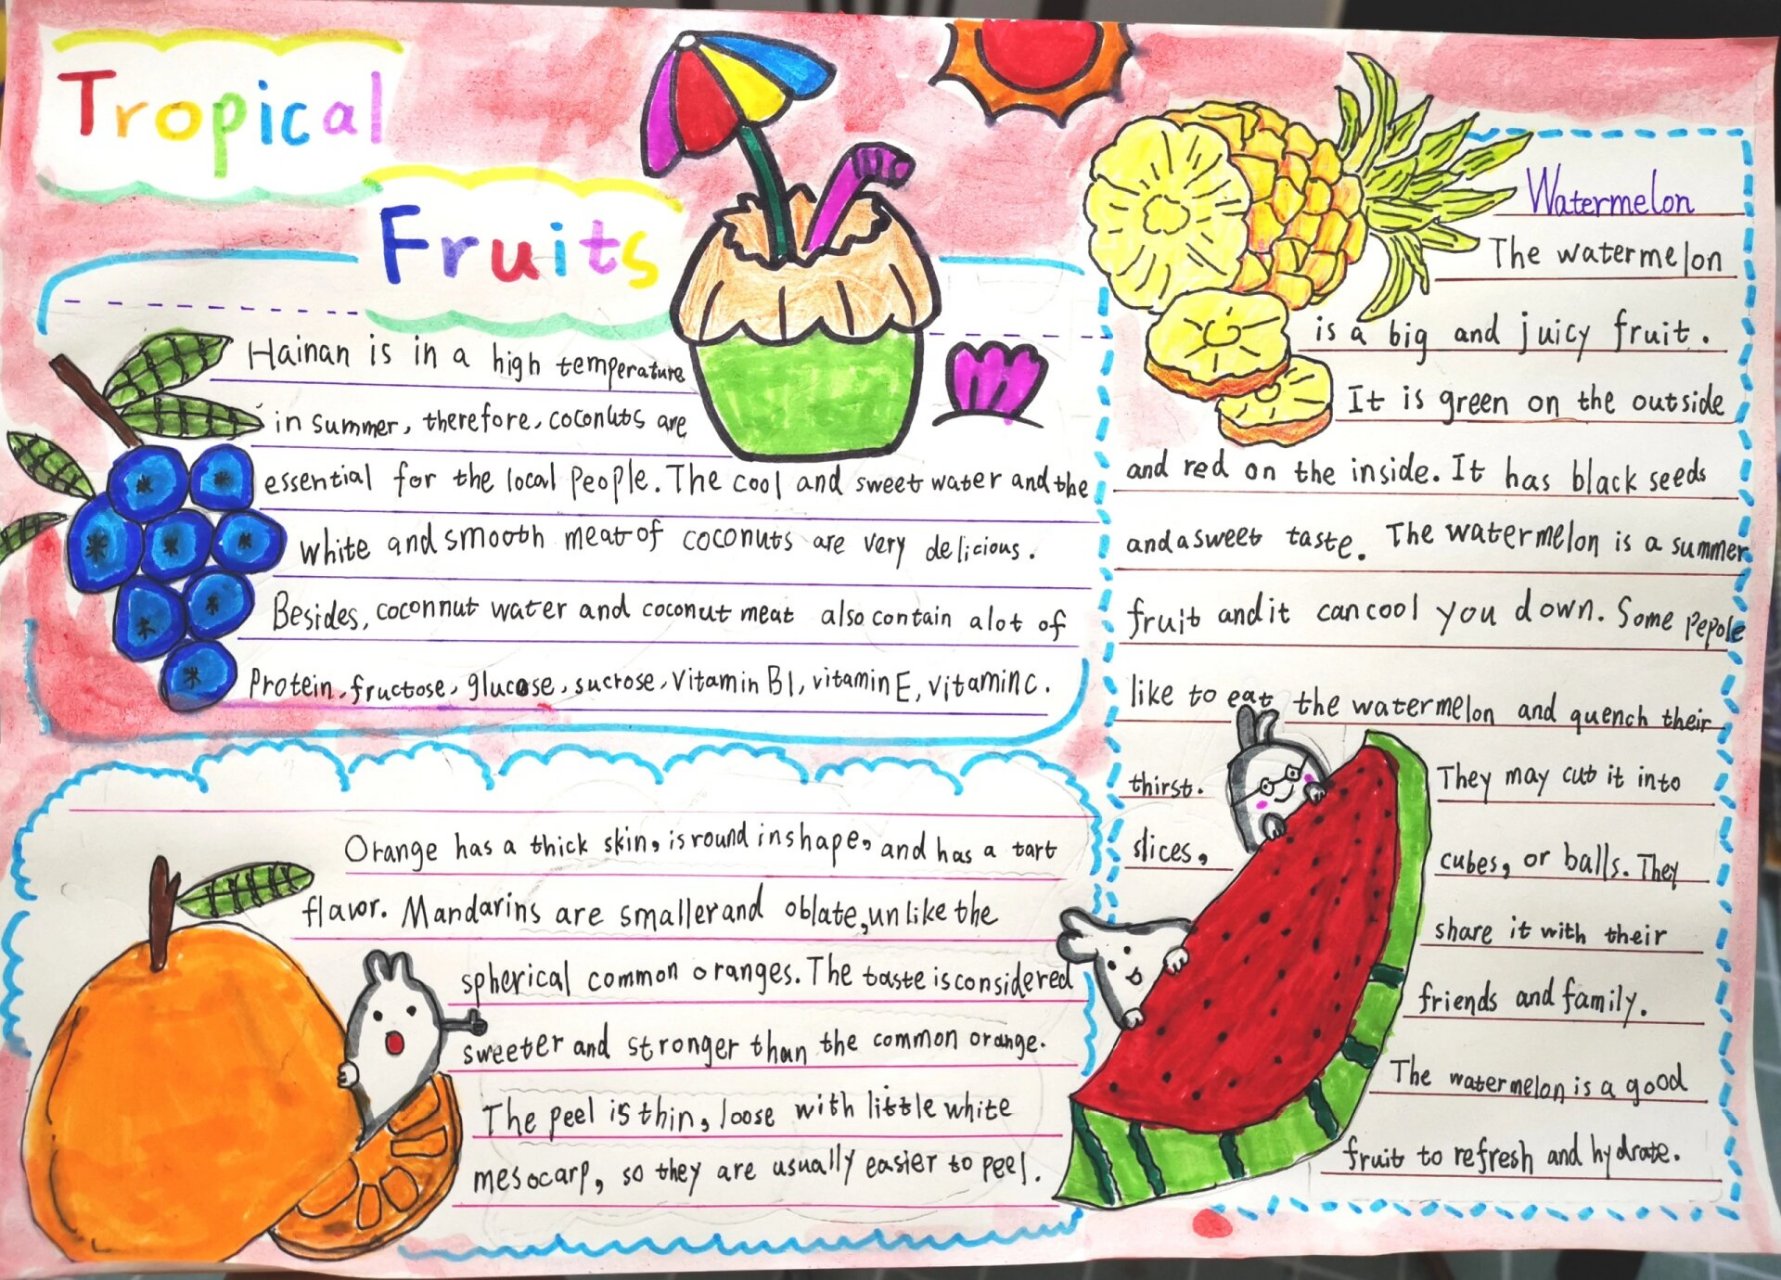 Tropical
Fruits
Hainan is in a high temperature
in summer, therefore, coconuts are
essential for the local People. The cool and sweet water and the
white and smooth meat of coconuts are very delicious.
Besides, coconnut water and coconut meat also contain a lot of
Protein, fructose, glucose, sucrose, Vitamin B1, vitamin E, vitamin c.
Orange has a thick skin, is round in shape, and has a tart
flavor. Mandarins are smaller and oblate, unlike the
spherical common oranges. The taste is considered
sweeter and stronger than the common orange.
The peel is thin, loose with little white
mesocarp, so they are usually easier to peel.
Watermelon
The watermelon
is a big and juicy fruit.
It is green on the outside
and red on the inside. It has black seeds
and a sweet taste. The watermelon is a summer
fruit and it can cool you down. Some pepole
like to eat the watermelon and quench their
thirst. They may cut it into
slices, cubes, or balls. They
share it with their
friends and family.
The watermelon is a good
fruit to refresh and hydrate.